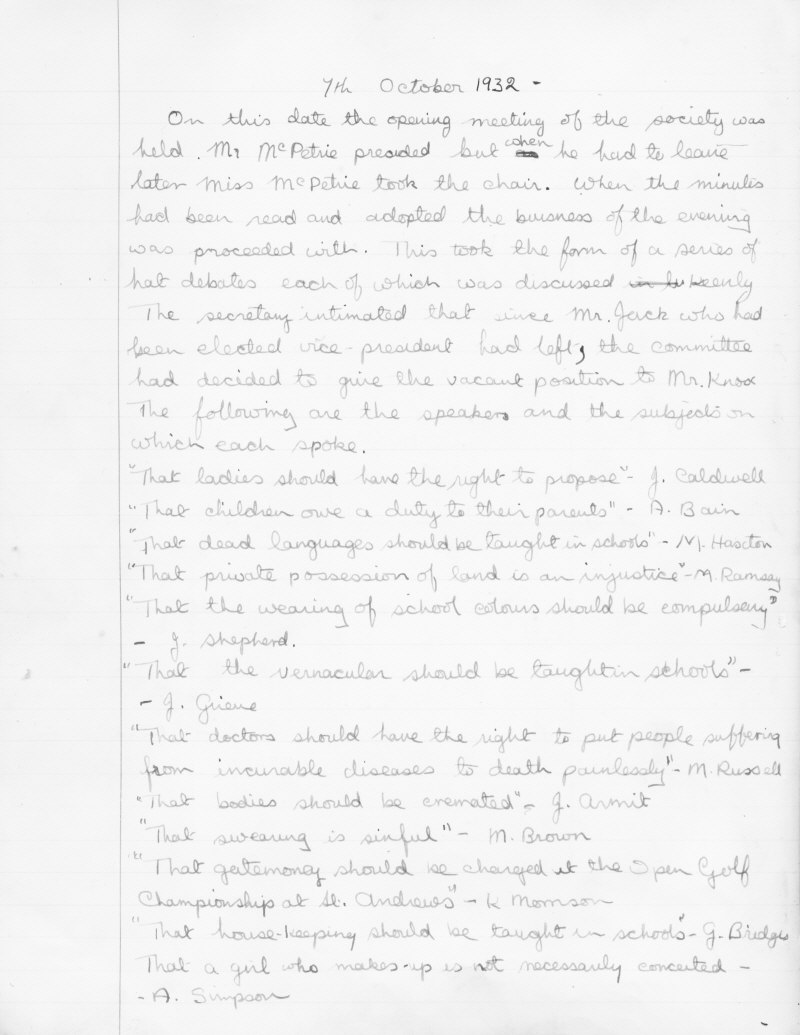 7th October 1932 -
On this date the opening meeting of the society was
held. Mr McPetrie presided but when he had to leave
later Miss McPetrie took the chair. When the minutes
had been read and adopted the buisness of the evening
was proceeded with. This took the form of a series of
hat debates each of which was discussed keenly
The secretary intimated that since Mr. Jack who had
been elected vice-president had left, the committee
had decided to give the vacant position to Mr. Knox
The following are the speakers and the subjects on
which each spoke.
"That ladies should have the right to propose" - J. Caldwell
"That children owe a duty to their parents" - A. Bain
"That dead languages should be taught in schools" - M.
"That private possession of land is an injustice" - M. Ramsay
"That the wearing of school colours should be compulsery"
- J. Shepherd.
"That the vernacular should be taught in schools" -
- J. Grieve
"That doctors should have the right to put people suffering
from incurable diseases to death painlessly" - M. Russell
"That bodies should be cremated" - J. Armit
"That swearing is sinful" - M. Brown
"That gatemoney should be charged at the Open Golf
Championship at St. Andrews" - K Morrison
"That house-keeping should be taught in schools" - G. Bridges
That a girl who makes-up is not necessarily conceited -
- A. Simpson